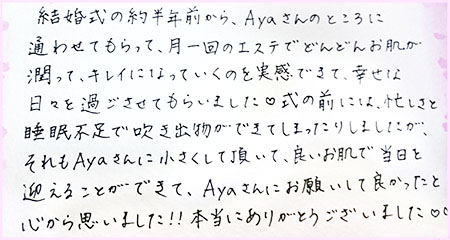 結婚式の約半年前から、Ayaさんのところに
通わせてもらって、月一回のエステでどんどんお肌が
潤って、キレイになっていくのを実感できて、幸せな
日々を過ごさせてもらいました♡式の前には、忙しさと
睡眠不足で吹き出物ができてしまったりしましたが、
それもAyaさんに小さくして頂いて、良いお肌で当日を
迎えることができて、Ayaさんにお願いして良かったと
心から思いました!!本当にありがとうございました♡♡